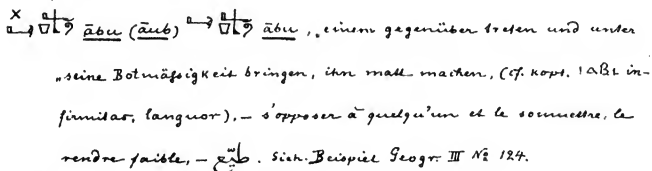 ābu (āub) ābu, „einem gegenüber treten und unter
„seine Botmäfsigkeit bringen, ihn matt machen, (cf. kopt. ⲓⲁⲃⲓ in-
firmitas, languor), – s'opposer à quelqu'un et le soumettre, le
rendre faible, – . Sieh. Beispiel Geogr. III № 124.